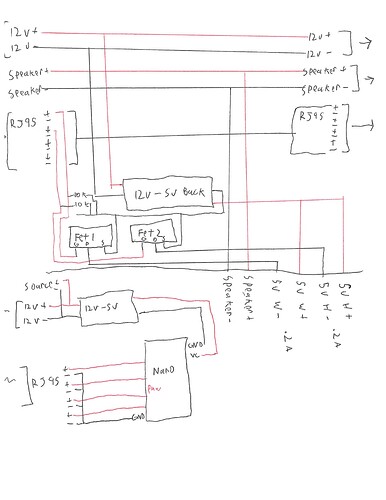 12v+ 12v+
12v- 12v-
Speaker+ Speaker+
Speaker- Speaker-
RJ45 + - + - + - + -
RJ45 + - + - + -
10k
10k
12v-5v Buck
Fet1
G D S
Fet2
G D S
Source+
12v+
12v-
12v-5v
Speaker-
Speaker+
5v W-
.2A
5v W+
5v W-
.2A
5v W+
RJ45 + - + - + - + -
Nano
GND
VC
GND